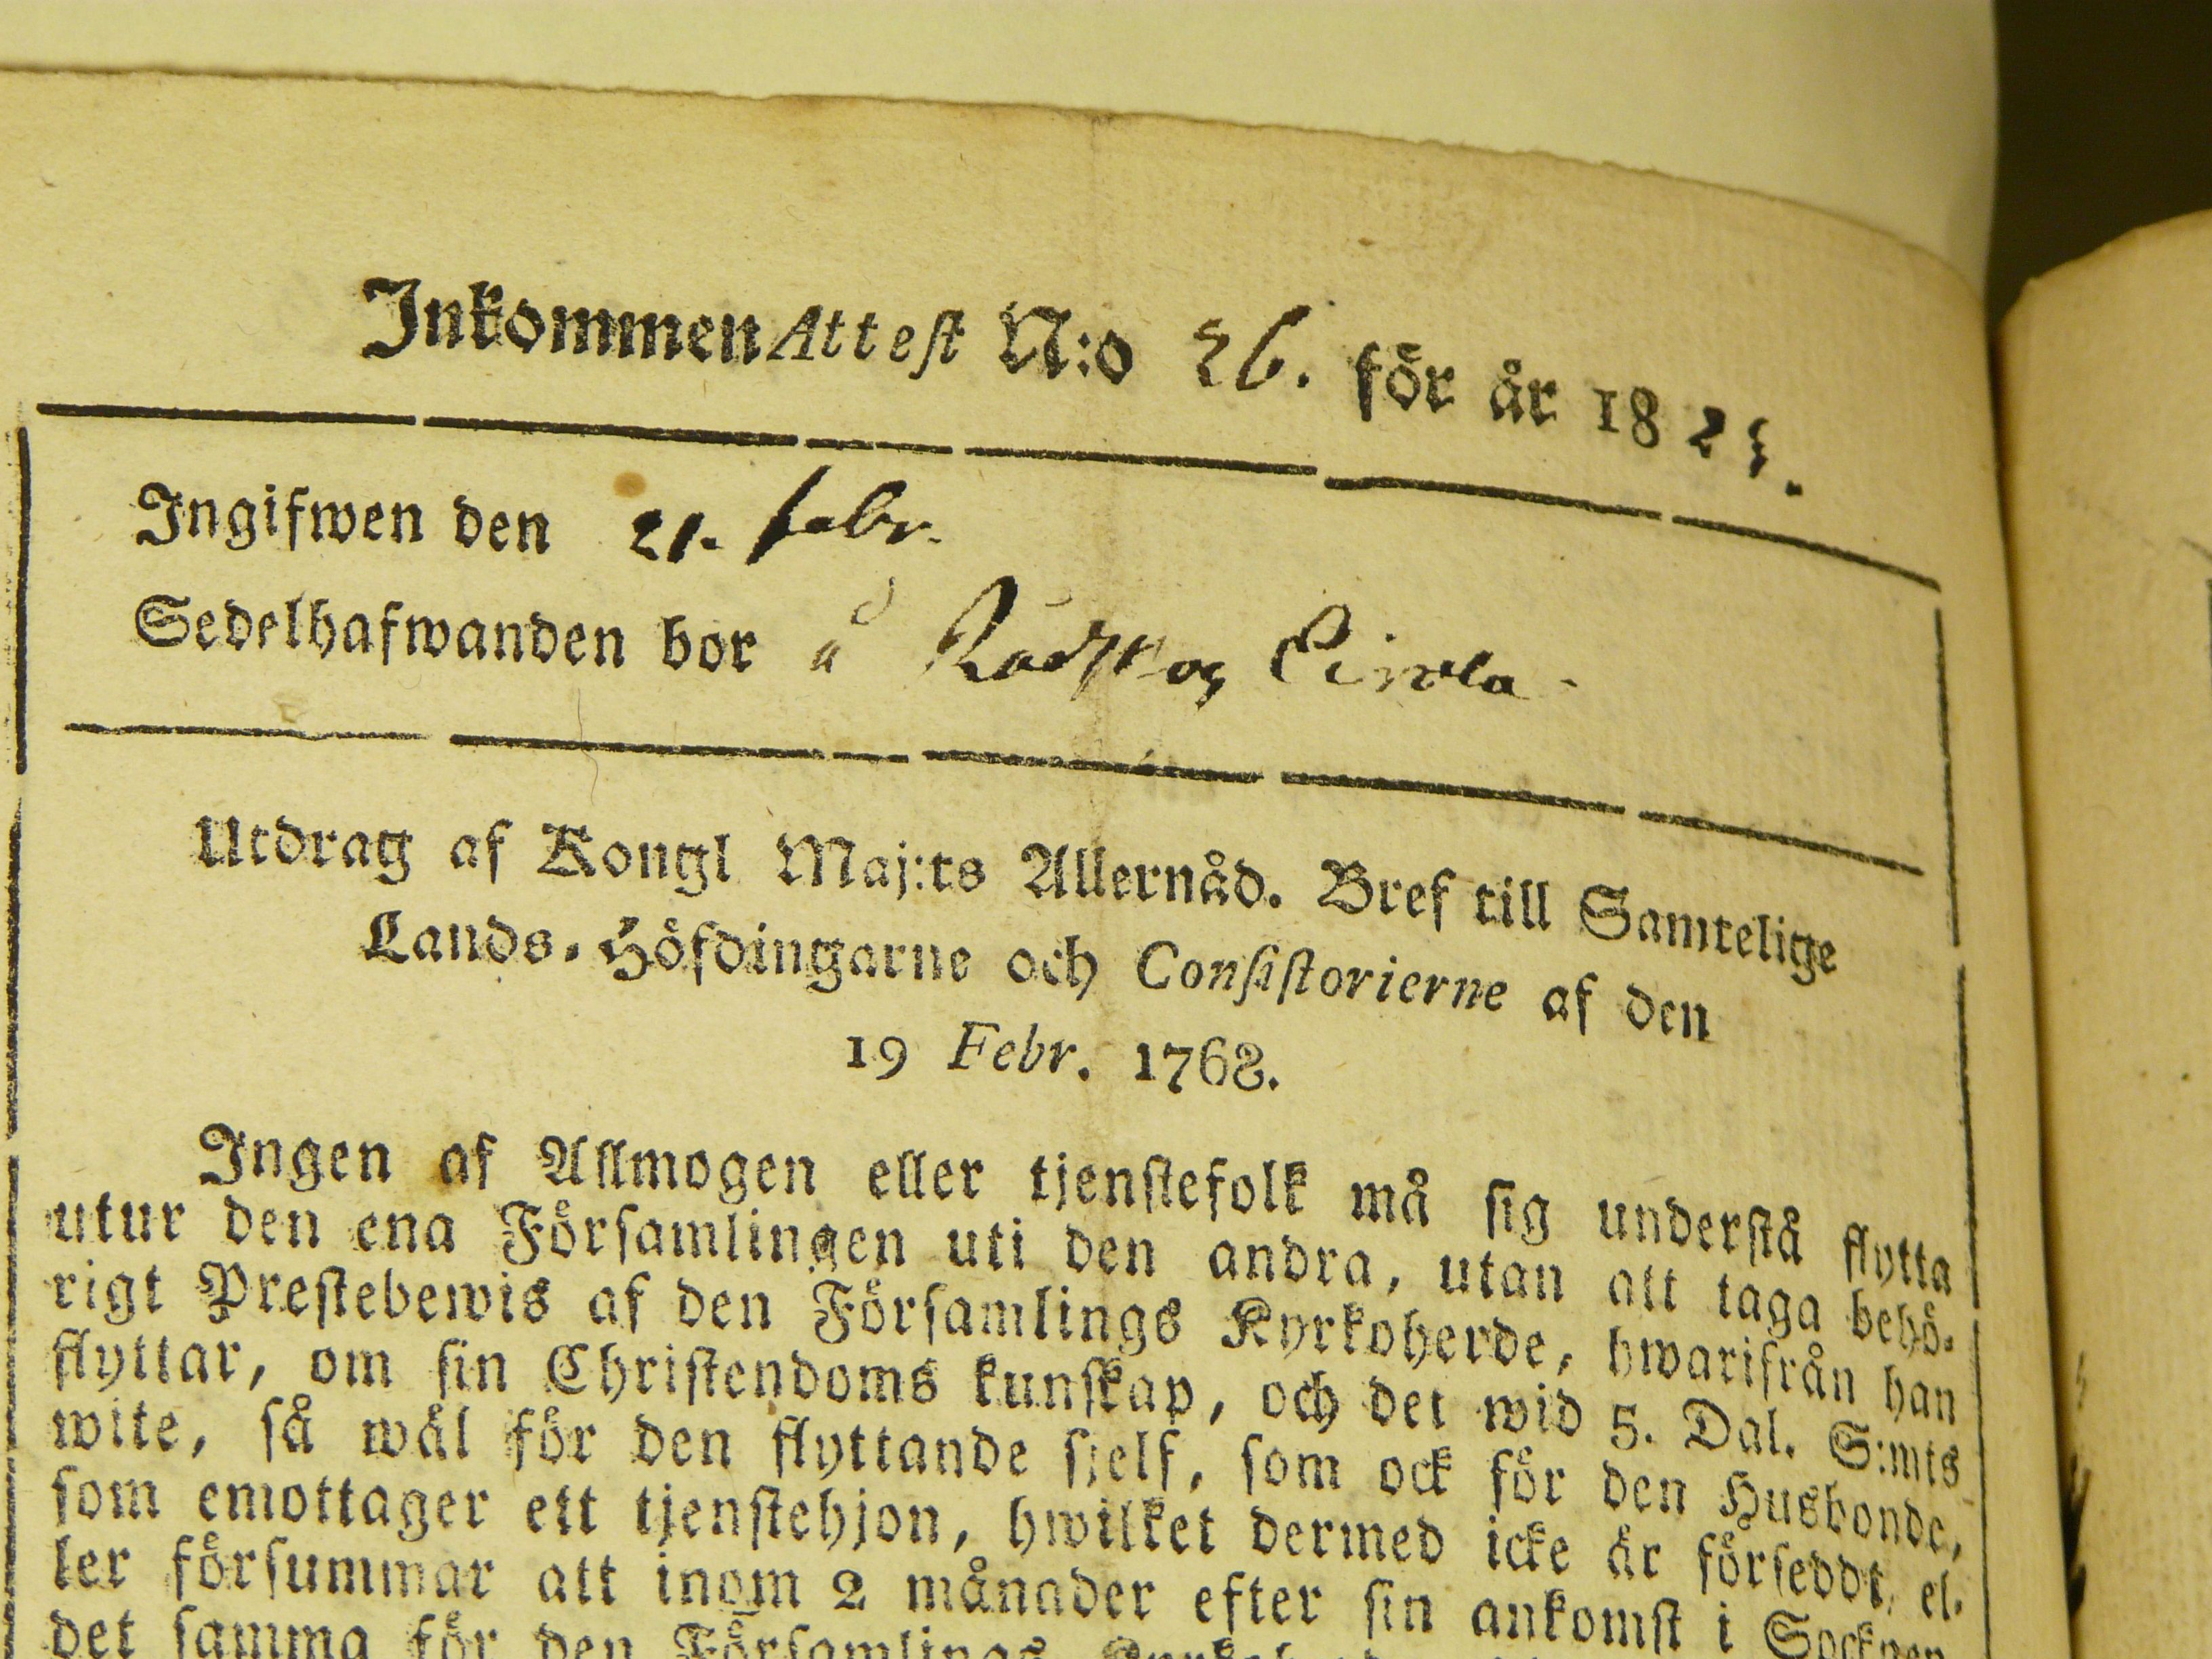 Inkommen Attest N:o 26. för år 182
Ingifwen den 21. Febr.
Sedelhafwanden bor å
Utdrag af Kongl Maj:ts Allernåd. Bref till Samtelige
Lands-Höfdingarne och Consistorierne af den
19 Febr. 1768.
Ingen af Allmogen eller tjenstefolk må sig understå flytta
utur den ena Församlingen uti den andra, utan att taga behö-
rigt Prestebewis af den Församlings Kyrkoherde, hwarifrån han
flyttar, om sin Christendoms kunskap, och det wid 5. Dal. S:mts
wite, så wäl för den flyttande sjelf, som ock för den Husbonde,
som emottager ett tjenstehjon, hwilket dermed icke är förseddt, el-
ler försummar att inom 2 månader efter sin ankomst i Socknen
det samma för den Församlings